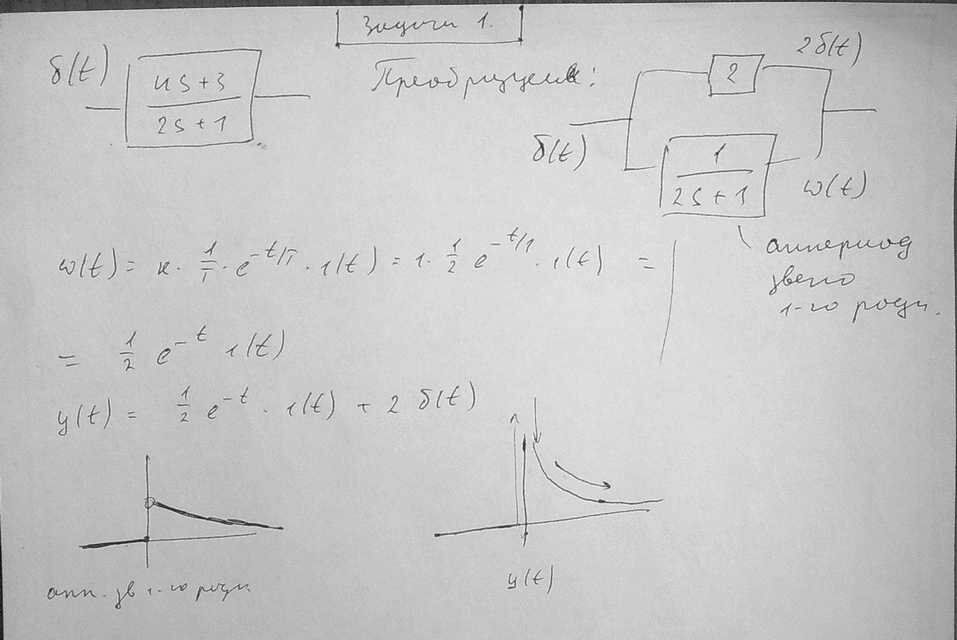 Задача 1.
δ(t)
4s+3
2s+1
Преобразуем:
2δ(t)
2
δ(t)
1
2s+1
ω(t)
апериод
звено
1-го рода.
ω(t) = к · 1/T · e^{-t/T} · 1(t) = 1 · 1/2 e^{-t/1} · 1(t) =
= 1/2 e^{-t} 1(t)
y(t) = 1/2 e^{-t} · 1(t) + 2 δ(t)
апп. зв 1-го рода
y(t)